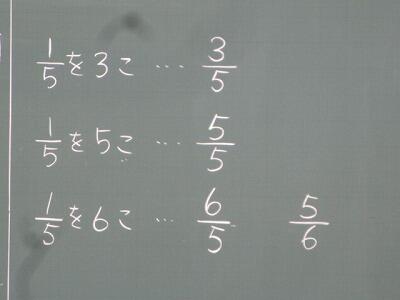 1/5を3こ … 3/5
1/5を5こ … 5/5
1/5を6こ … 6/5 5/6